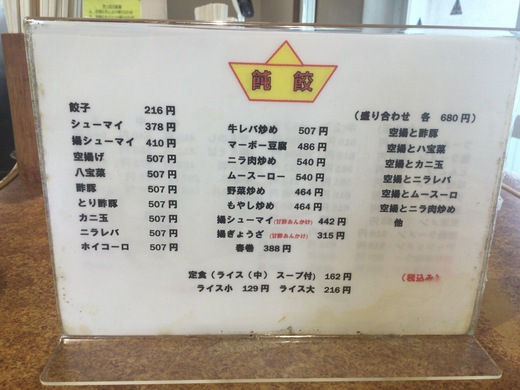 飩餃
餃子 216円
シューマイ 378円
揚シューマイ 410円
空揚げ 507円
八宝菜 507円
酢豚 507円
とり酢豚 507円
カニ玉 507円
ニラレバ 507円
ホイコーロ 507円
牛レバ炒め 507円
マーボー豆腐 486円
ニラ肉炒め 540円
ムースーロー 540円
野菜炒め 464円
もやし炒め 464円
揚シューマイ(甘酢あんかけ) 442円
揚ぎょうざ(甘酢あんかけ) 315円
春巻 388円
(盛り合わせ 各 680円)
空揚と酢豚
空揚とハ宝菜
空揚とカニ玉
空揚とニラレバ
空揚とムースーロ
空揚とニラ肉炒め
他
定食(ライス(中) スープ付) 162円
ライス小 129円 ライス大 216円
(税込み)